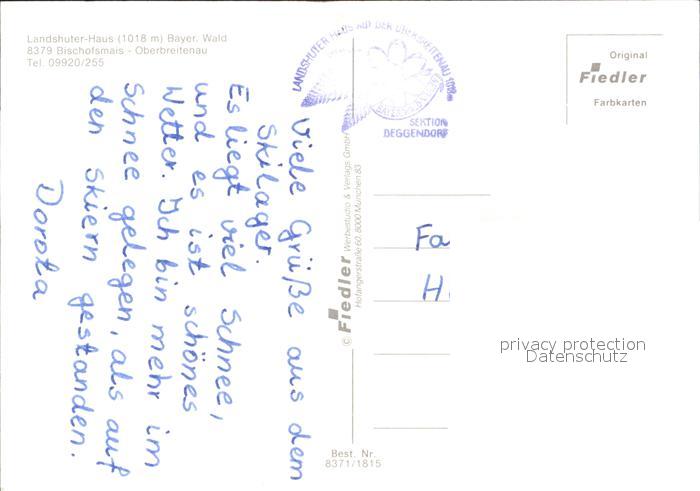 Landshuter-Haus (1018 m) Bayer. Wald
8379 Bischofsmais - Oberbreitenau
Tel. 09920/255
Viele Grüße aus dem
Skilager.
Es liegt viel Schnee,
und es ist schönes
Wetter. Ich bin mehr im
Schnee gelegen, als auf
den Skiern gestanden.
Dorota
LANDSHUTER HAUS AUF DER OBERBREITENAU
SEKTION
DEGGENDORF
© Fiedler Werbestudio & Verlags GmbH
Hofangerstraße 60, 8000 München 83
Best. Nr.
8371/1815
Original
Fiedler
Farbkarten
Fa
H
privacy protection
Datenschutz